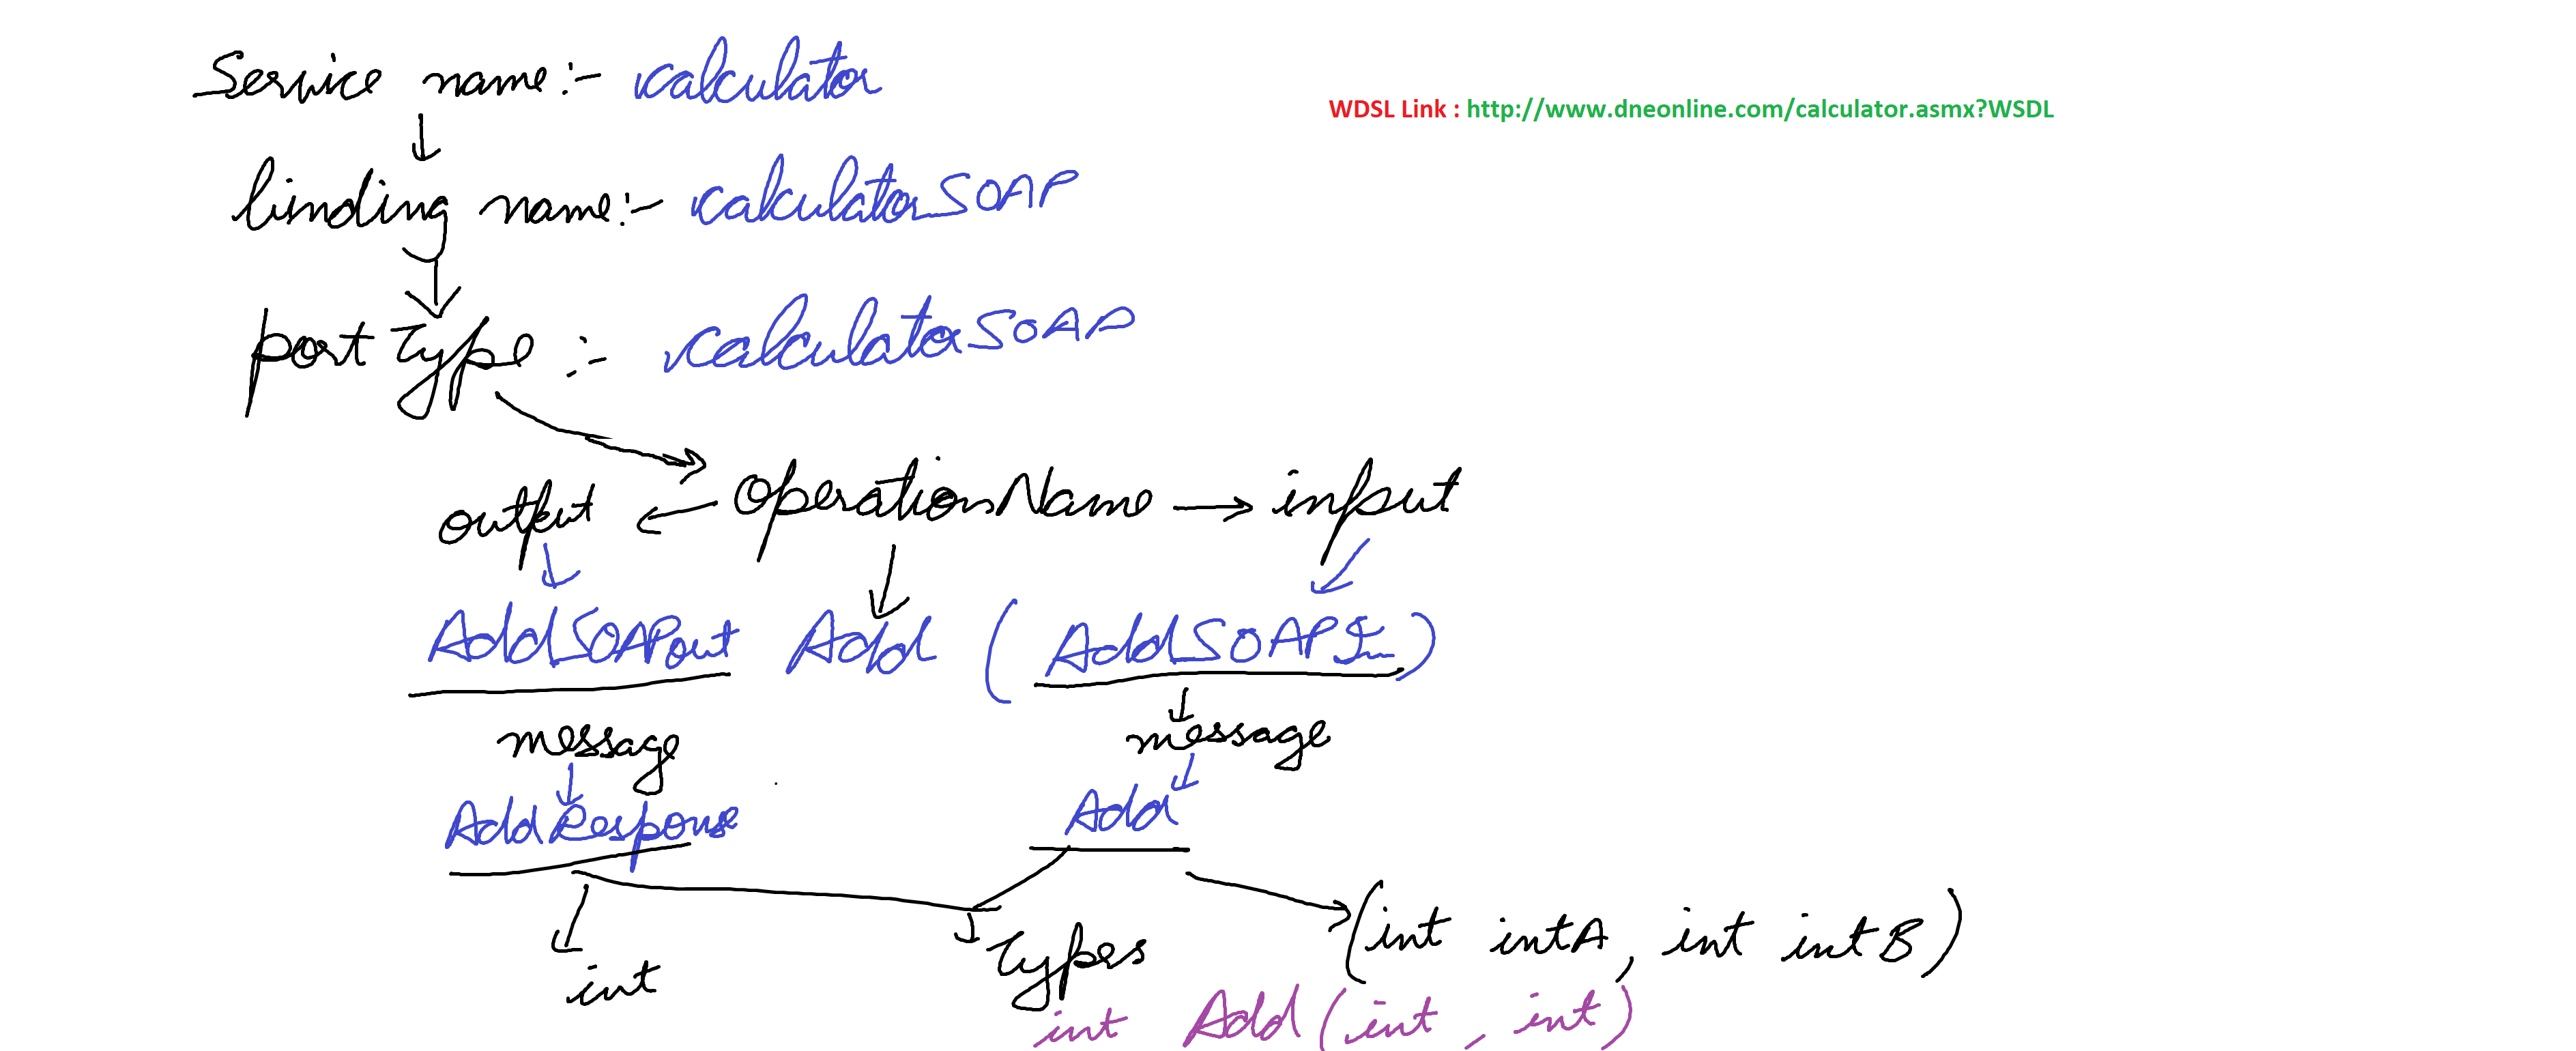 Service name:- calculator
WDSL Link : http://www.dneonline.com/calculator.asmx?WSDL
binding name:- calculatorSOAP
portType :- calculatorSOAP
output ← OperationName → input
AddSOAPout Add (AddSOAPIn)
message message
AddResponse Add
(int intA, int intB)
int Types
int Add(int, int)